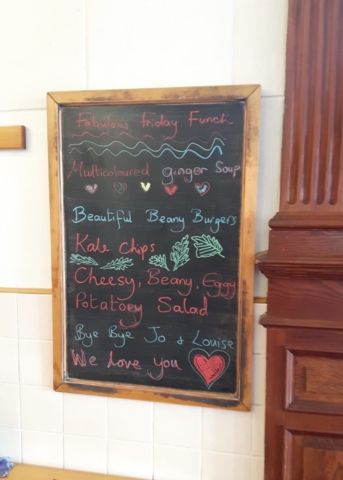 Fabulous Friday Funch
Multicoloured ginger Soup
Beautiful Beany Burgers
Kale chips
Cheesy, Beany, Eggy
Potatoey Salad
Bye Bye Jo & Louise
We love you